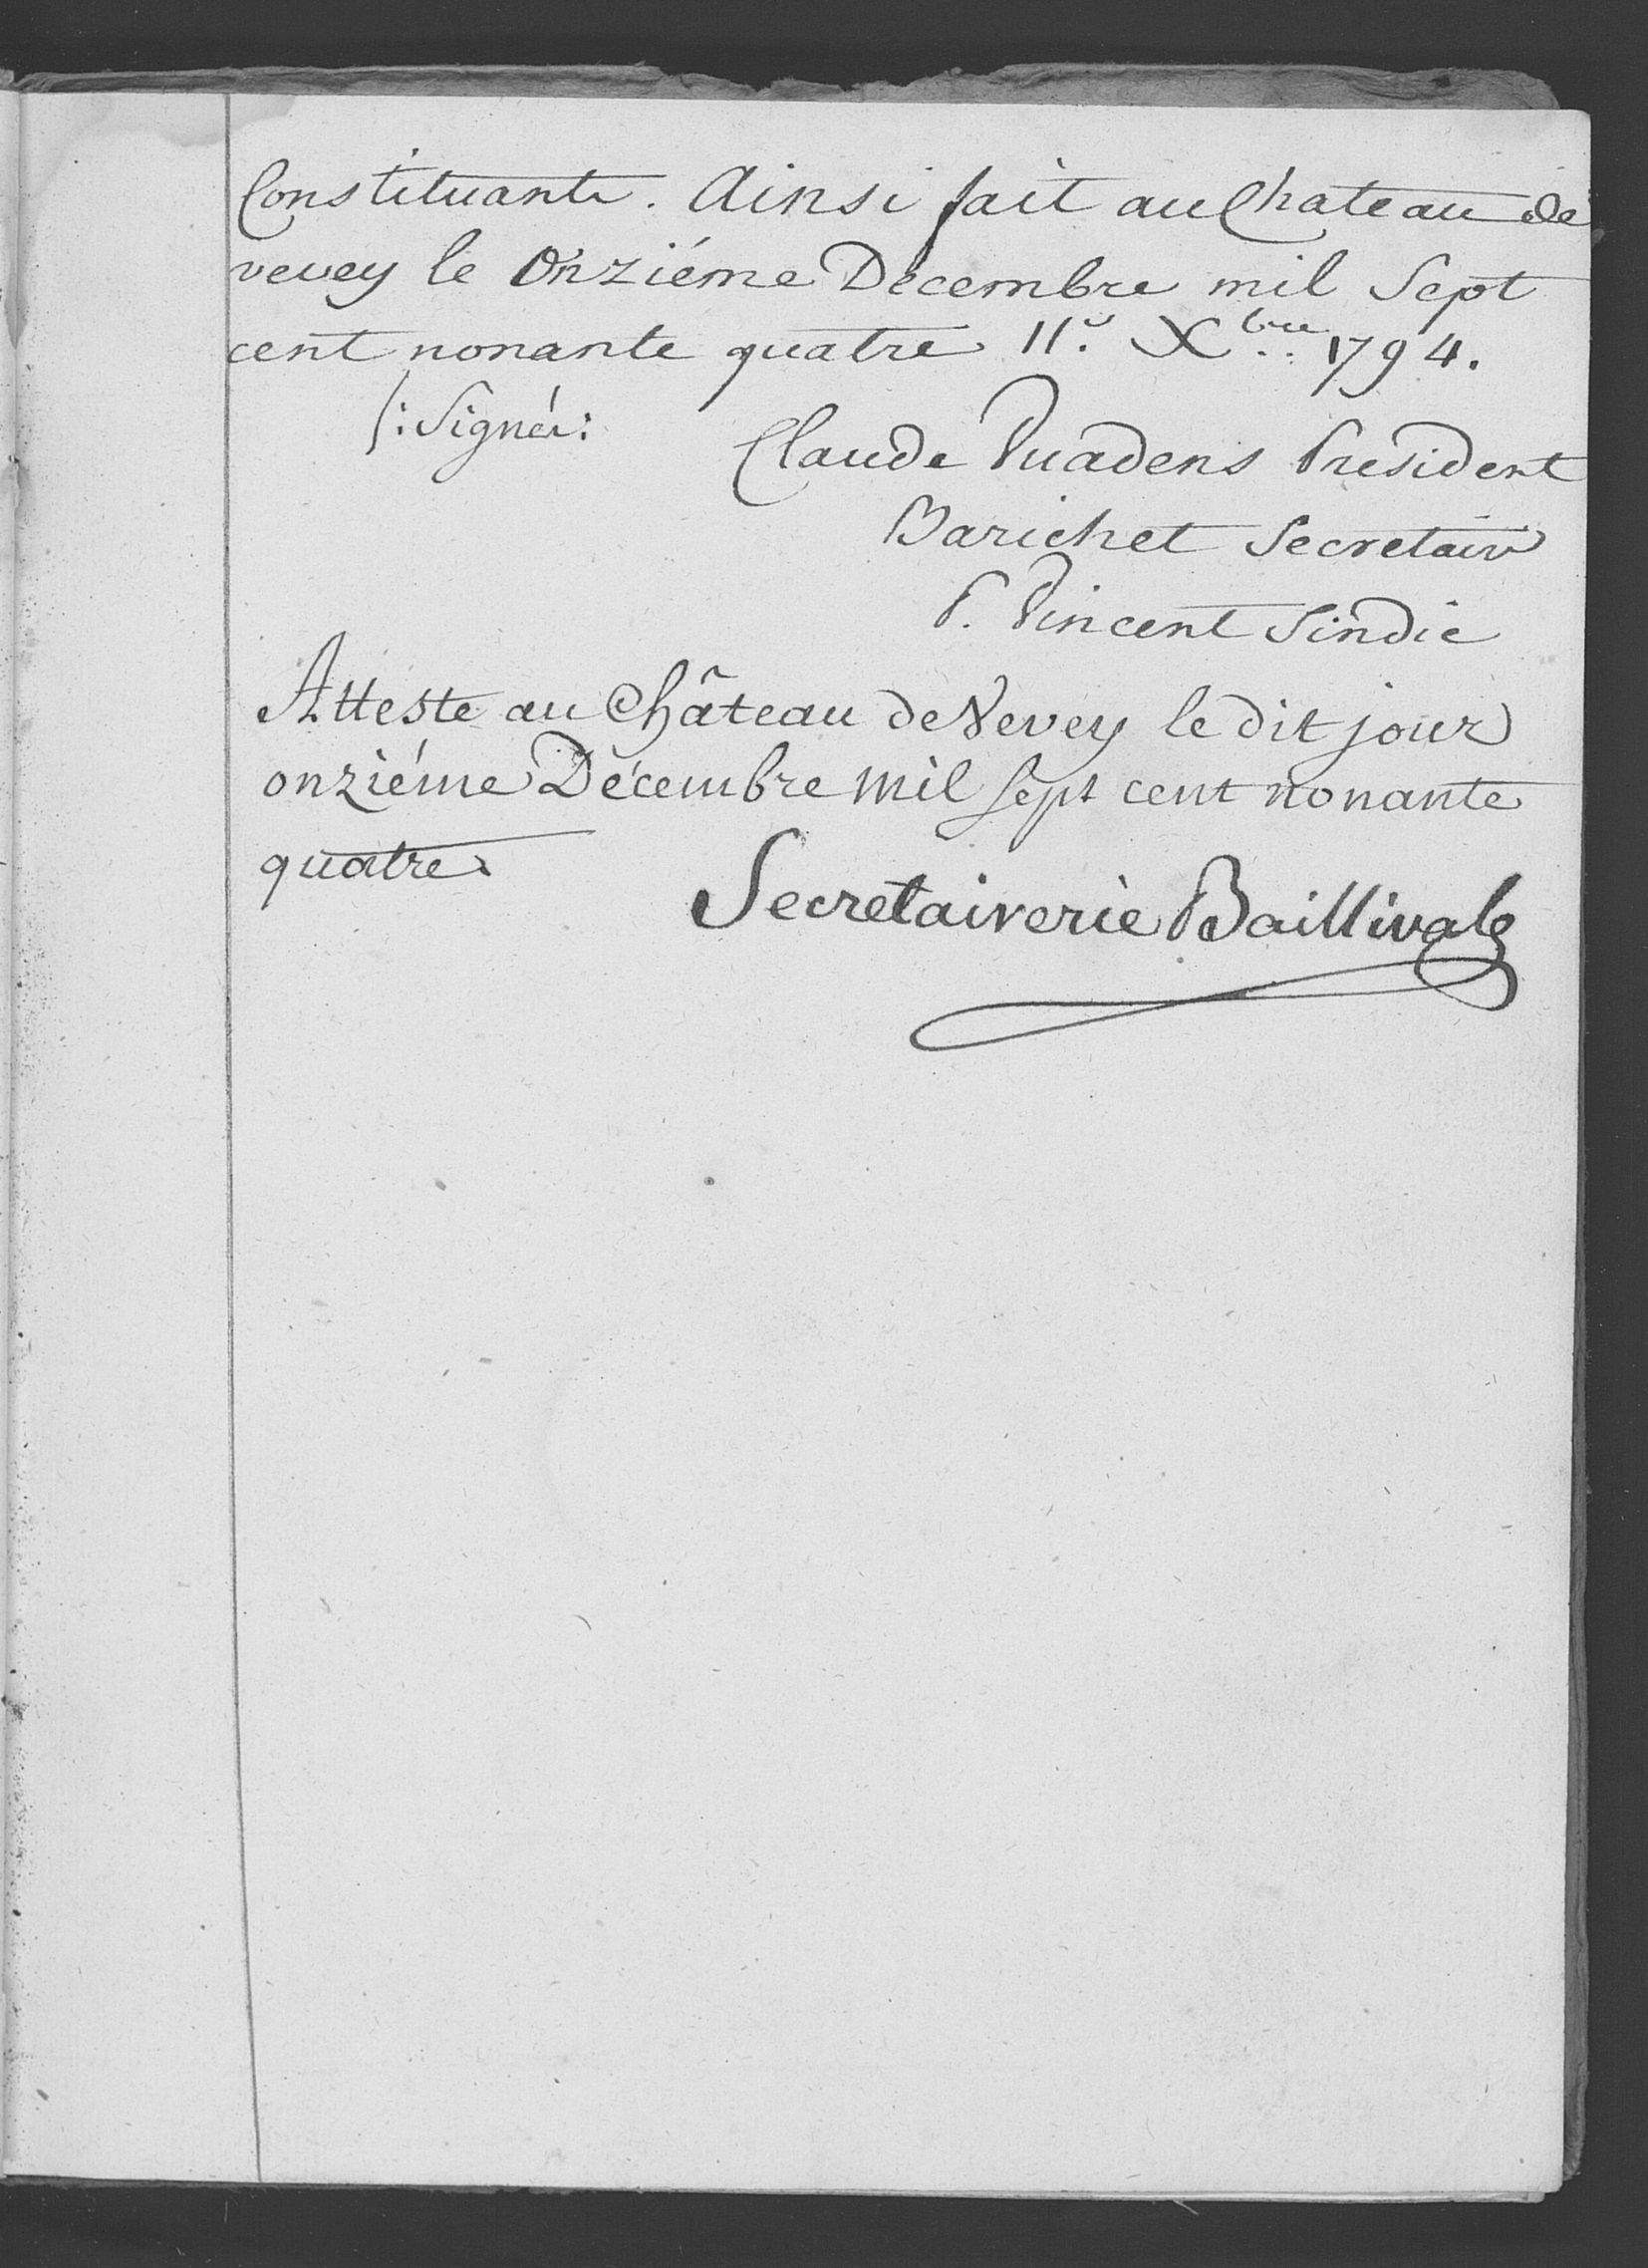 Constituante. Ainsi fait au Chateau de
vevey le Onziéme Decembre mil Sept
cent nonante quatre 11.e Xbre 1794.
/: Signés :
Claude Vuadens President
Barichet Secretaire
P. Vincent Sindic
Atteste au Château de Vevey le dit jour
onziéme Décembre mil sept cent nonante
quatre.
Secretairerie Baillivale